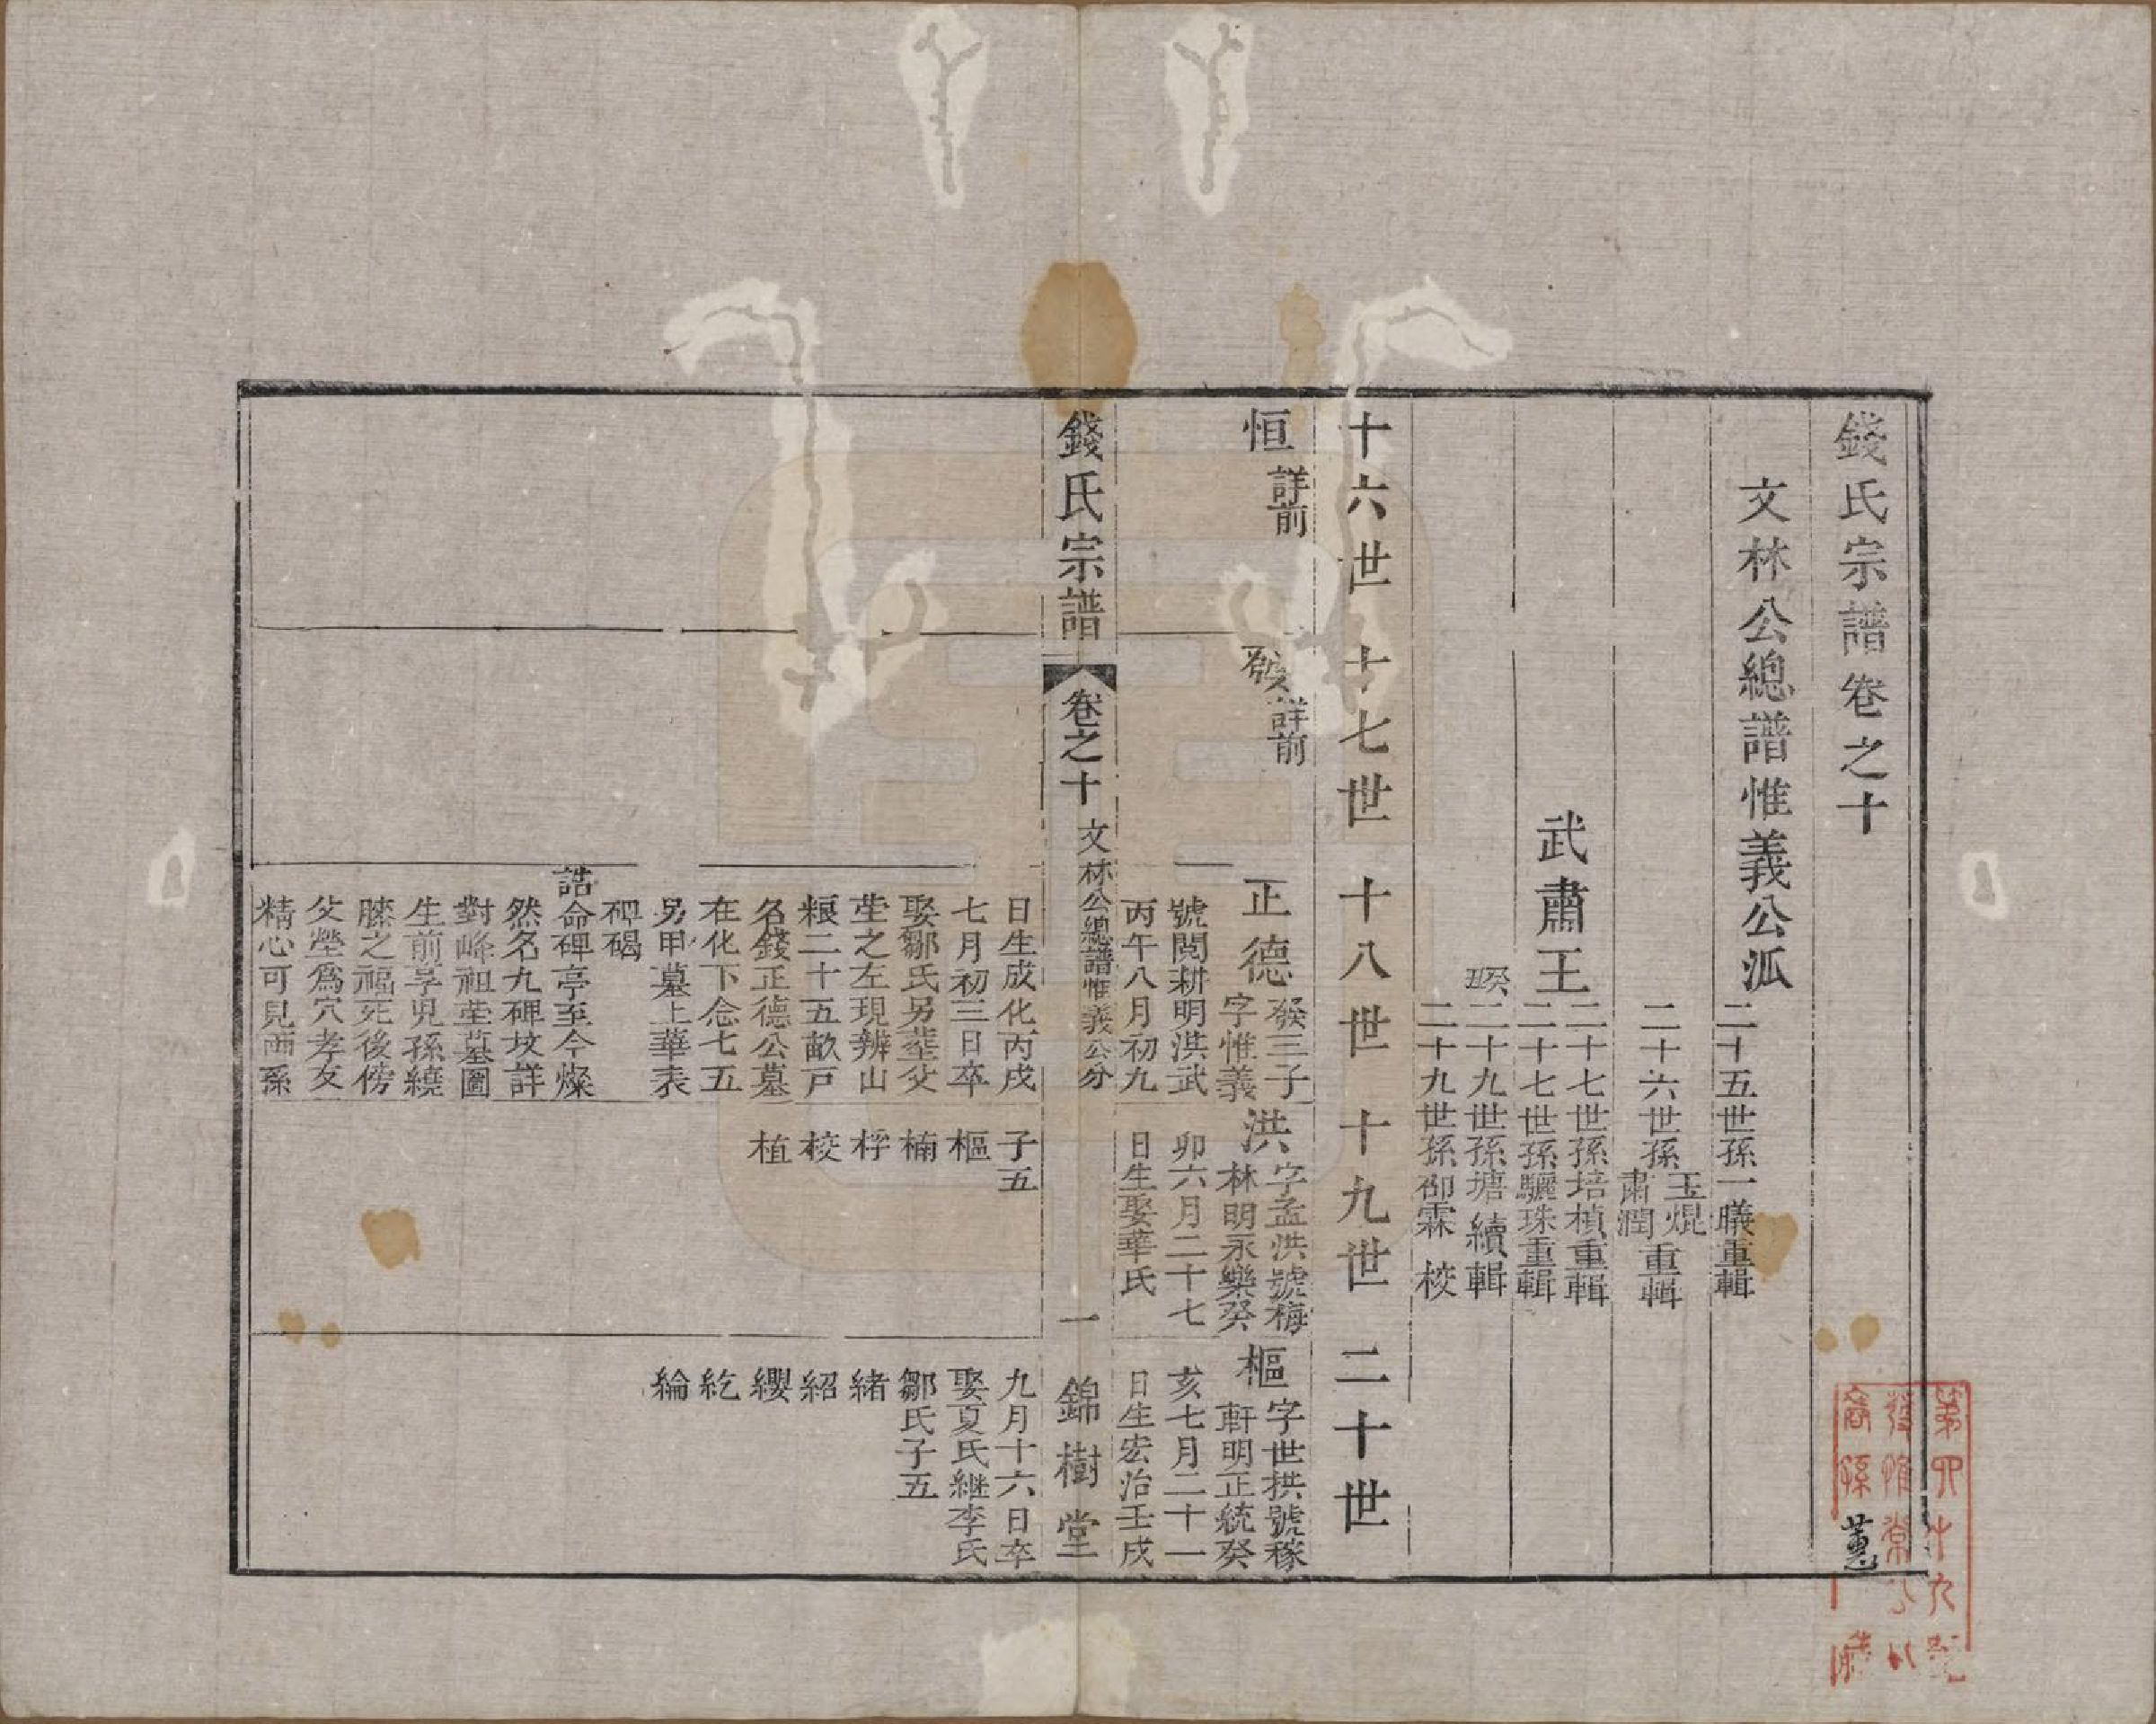 錢氏宗譜卷之十
文林公總譜惟義公派
二十五世孫一曦重輯
二十六世孫玉焜肅潤重輯
武肅王
二十七世孫培楨重輯
二十七世孫驪珠重輯
二十九世孫塘續輯
二十九世孫御霖校
十六世 十七世 十八世 十九世 二十世
恒 詳前
發 詳前
正德 發三子
字惟義
號閱耕明洪武
丙午八月初九
日生成化丙戌
七月初三日卒
娶鄒氏另塟父
塋之左現辦山
粮二十五畝戸
名錢正德公墓
在化下念七五
另甲墓上華表
碑碣
誥命碑亭至今燦
然名九碑坟詳
對峰祖塋墓圖
生前享兒孫繞
膝之福死後傍
父塋爲穴孝友
精心可見而孫
洪 字孟洪號梅
林明永樂癸
卯六月二十七
日生娶華氏
子五
樞
楠
桴
校
植
樞 字世拱號稼
軒明正統癸
亥七月二十一
日生宏治壬戌
九月十六日卒
娶夏氏継李氏
鄒氏子五
緒
紹
纓
紇
綸
錢氏宗譜 卷之十 文林公總譜惟義公分 一 錦樹堂
蕙